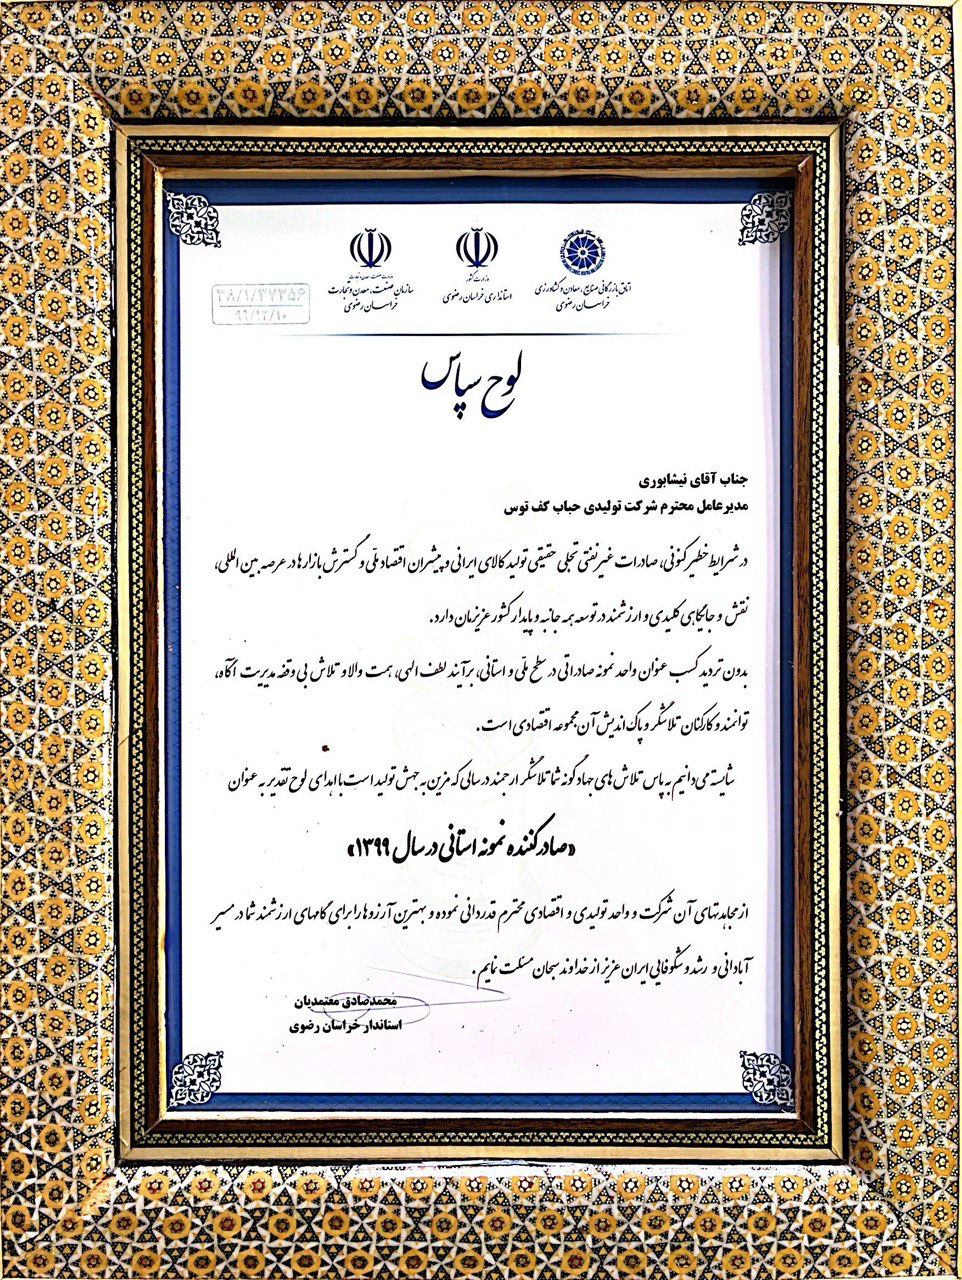 اتاق بازرگانی صنایع، معادن و کشاورزی
خراسان رضوی
وزارت کشور
استانداری خراسان رضوی
وزارت صنعت، معدن و تجارت
سازمان صنعت، معدن و تجارت
خراسان رضوی
۳۸/۱/۲۷۳۵۶
۹۹/۱۲/۱۰
لوح سپاس
جناب آقای نیشابوری
مدیرعامل محترم شرکت تولیدی حباب کف توس
در شرایط خطیر کنونی، صادرات غیرنفتی تجلی حقیقی تولید کالای ایرانی و پیشران اقتصاد ملّی و گسترش بازارها در عرصه بین المللی،
نقش و جایگاهی کلیدی و ارزشمند در توسعه همه جانبه و پایدار کشور عزیزمان دارد.
بدون تردید کسب عنوان واحد نمونه صادراتی در سطح ملّی و استانی، برآیند لطف الهی، همت والا و تلاش بی وقفه مدیریت آگاه،
توانمند و کارکنان تلاشگر و پاک اندیش آن مجموعه اقتصادی است.
شایسته می دانیم به پاس تلاش های جهادگونه شما تلاشگر ارجمند در سالی که مزین به جهش تولید است با اهدای لوح تقدیر به عنوان
«صادرکننده نمونه استانی در سال ۱۳۹۹»
از مجاهدتهای آن شرکت و واحد تولیدی و اقتصادی محترم قدردانی نموده و بهترین آرزوها را برای گامهای ارزشمند شما در مسیر
آبادانی و رشد و شکوفایی ایران عزیز از خداوند سبحان مسئلت نمایم.
محمدصادق معتمدیان
استاندار خراسان رضوی